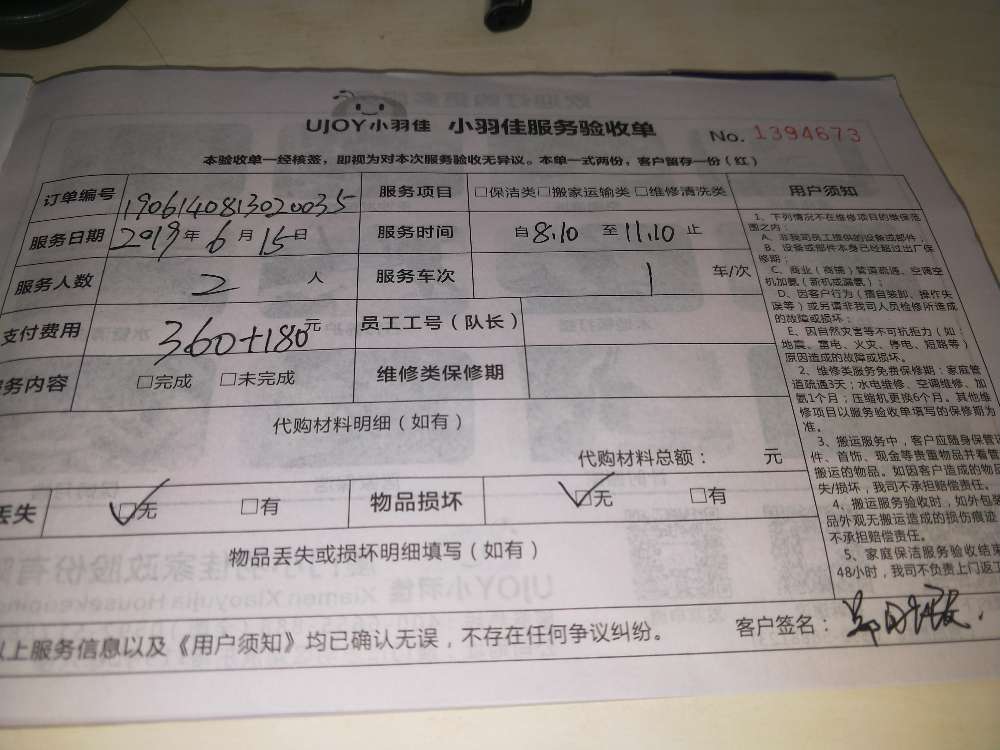 UJOY小羽佳 小羽佳服务验收单 No. 1394673
本验收单一经核签，即视为对本次服务验收无异议。本单一式两份，客户留存一份（红）
订单编号 1906140813020035 服务项目 □保洁类□搬家运输类□维修清洗类
服务日期 2019年6月15日 服务时间 自8.10 至11.10止
服务人数 2 人 服务车次 1 车/次
支付费用 360+180元 员工工号（队长）
务内容 □完成 □未完成 维修类保修期
代购材料明细（如有）
代购材料总额： 元
丢失 ☑无 □有 物品损坏 ☑无 □有
物品丢失或损坏明细填写（如有）
以上服务信息以及《用户须知》均已确认无误，不存在任何争议纠纷。 客户签名：
用户须知
1、下列情况不在维修项目的维保范
围之内：
A、非我司员工提供的设备或部件；
B、设备或部件本身已经超过出厂保
修期；
C、商业（商铺）管道疏通、空调空
机加氨（新机或漏氨）；
D、因客户行为（擅自装卸、操作失
误等）或另请非我司人员检修所造成
的故障或损坏；
E、因自然灾害等不可抗拒力（如：
地震、雷电、火灾、停电、短路等）
原因造成的故障或损坏。
2、维修类服务免费保修期：家庭管
道疏通3天；水电维修、空调维修、加
氨1个月；压缩机更换6个月。其他维
修项目以服务验收单填写的保修期为
准。
3、搬运服务中，客户应随身保管证
件、首饰、现金等贵重物品并看管
搬运的物品。如因客户造成的物品
失/损坏，我司不承担赔偿责任。
4、搬运服务验收时，如外包装
品外观无搬运造成的损伤痕迹
不承担赔偿责任。
5、家庭保洁服务验收结束
48小时，我司不负责上门返工